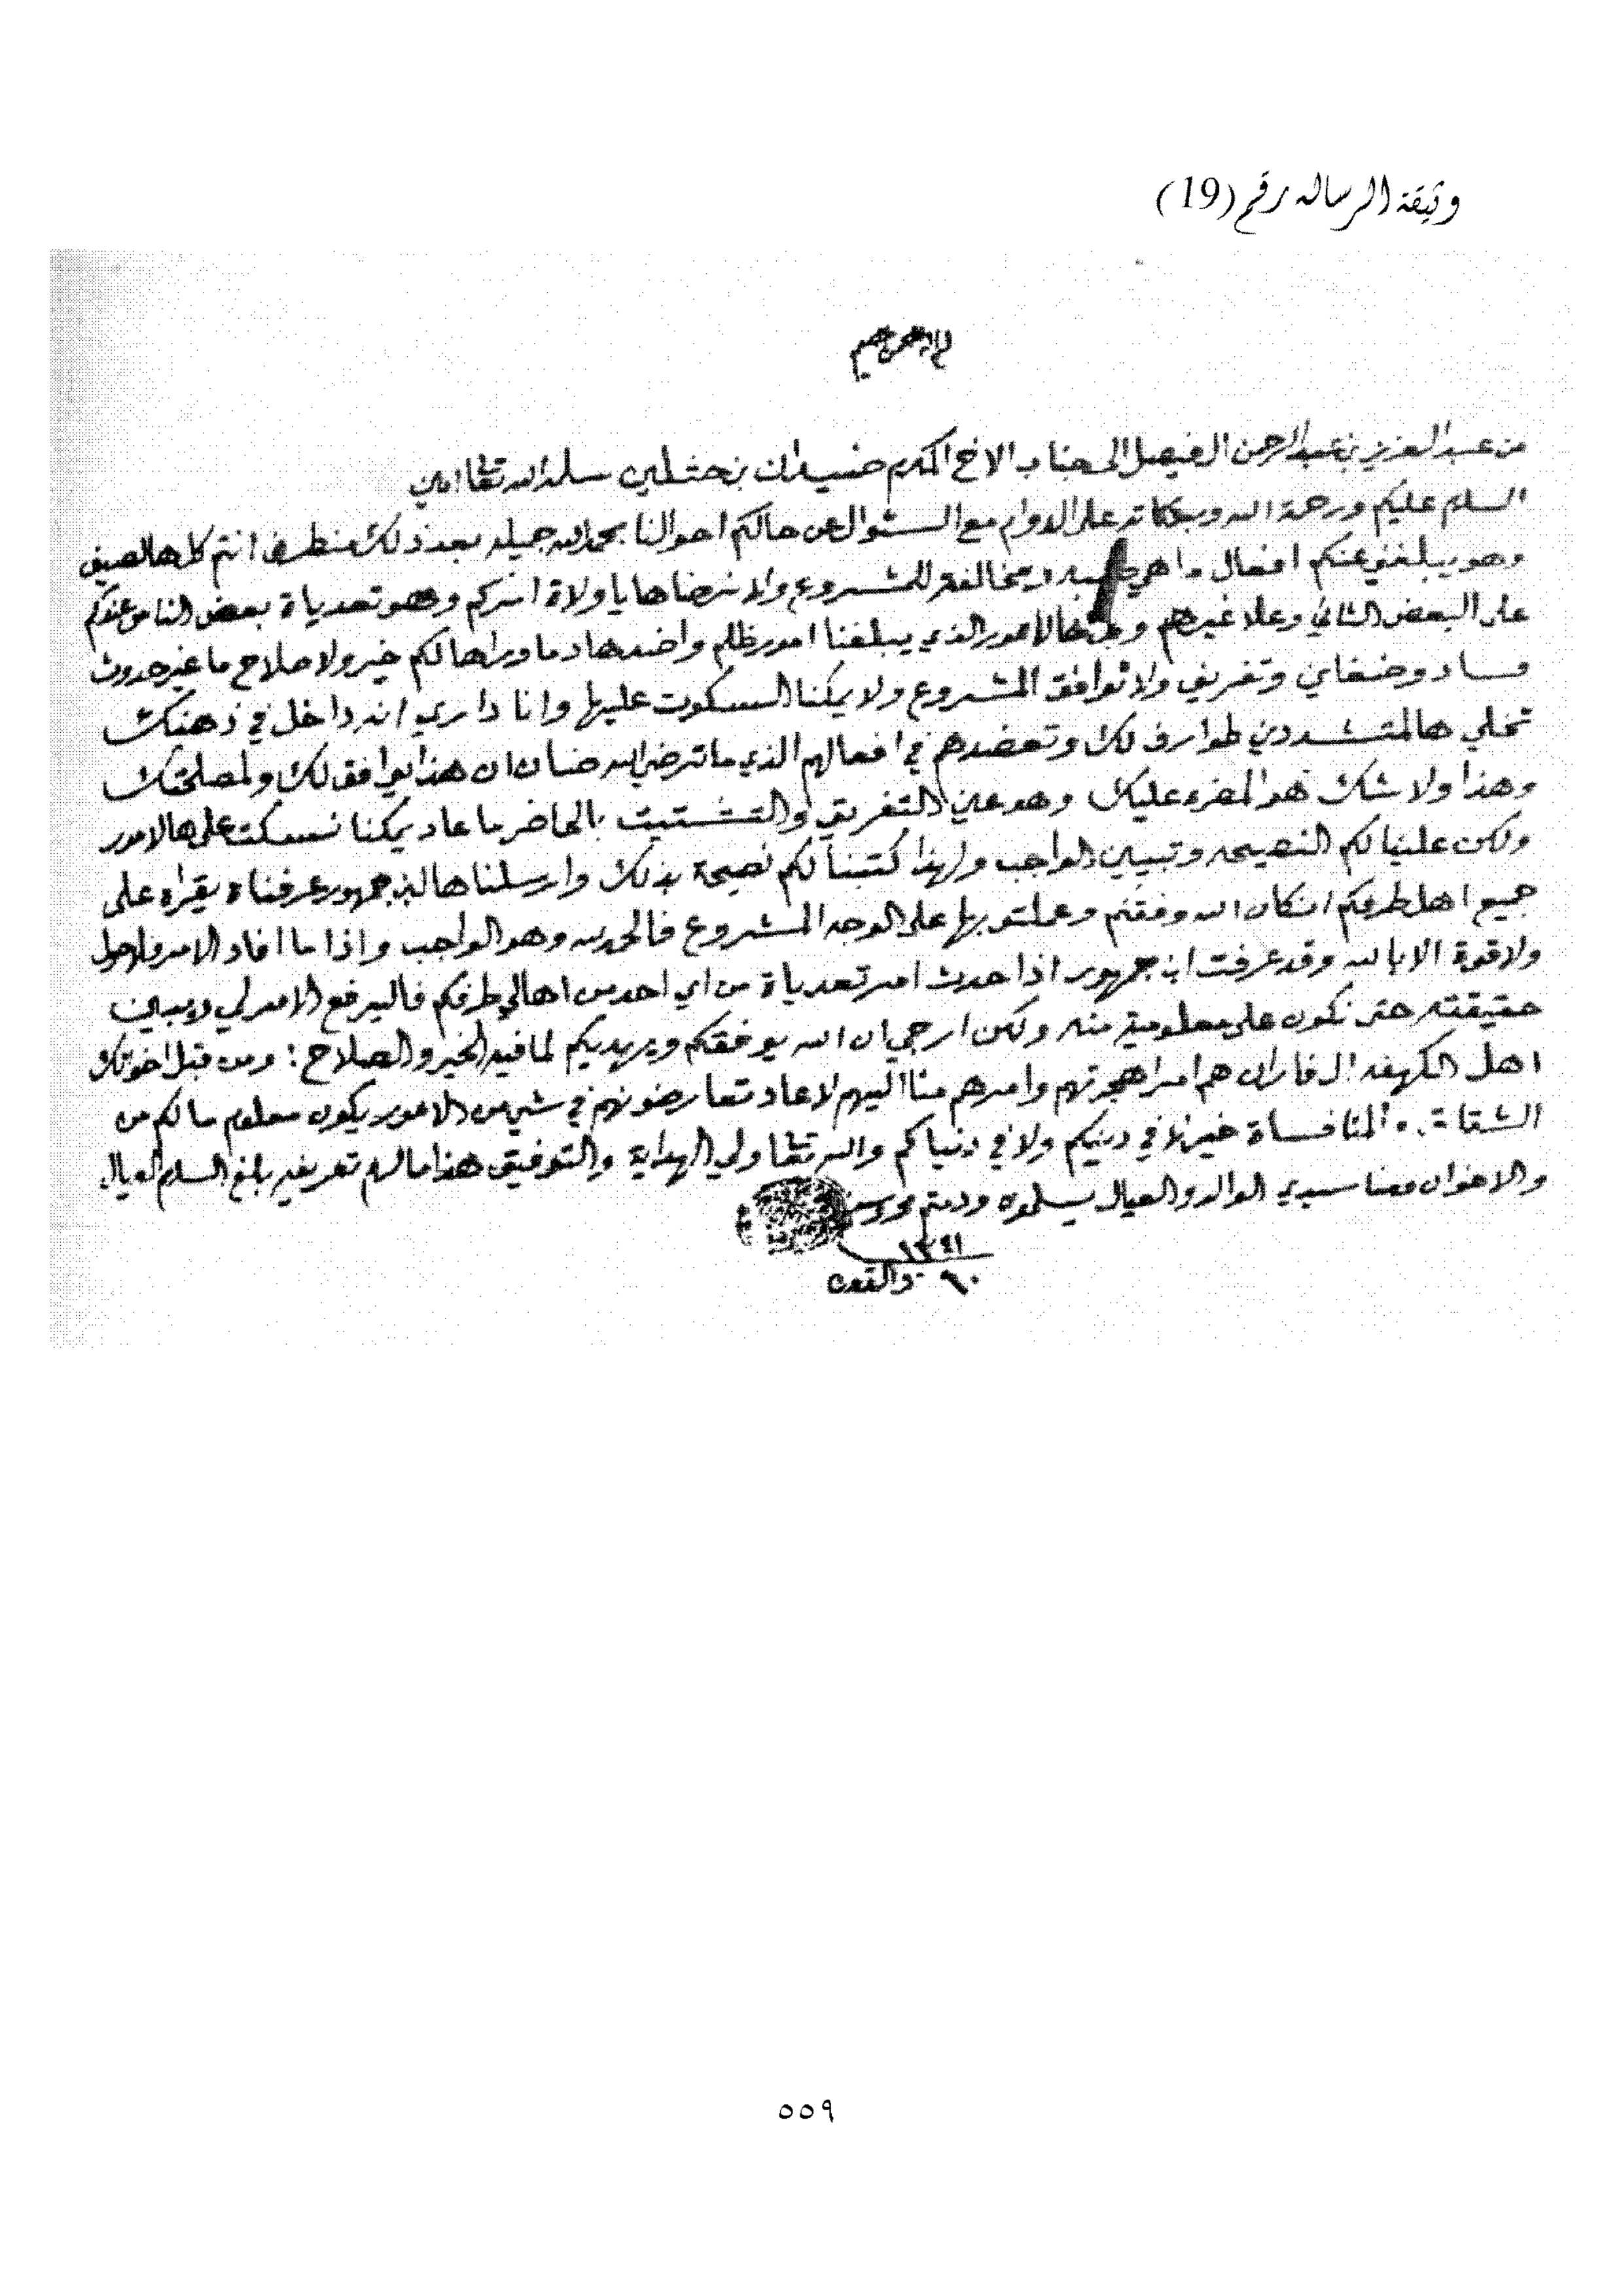 وثيقة الرساله رقم (19)
من عبد العزيز بن عبد الرحمن الفيصل الى جناب الاخ المكرم ضيدان بن حثلين سلمه الله تعا امين
السلم عليكم ورحمة الله وبركاته على الدوام مع السئوال عن حالكم احوالنا بحمد الله جميله بعد ذلك منطرف انتم كل هالصيف
وهو يبلغنو عنكم افعال ماهي ومخالفة للمشروع ولا نرضاها يا ولاة امركم وهو تعدياة بعض الناس عندكم
على البعض الثاني وعلا غيرهم وهالامور الذي يبلغنا امور ظلم واضهاد ما وراها لكم خير ولا صلاح ما غير حدوث
فساد وضغاين وتفريق ولا توافق المشروع ولا يمكنا السكوت عليها وانا داري انه داخل في ذهنك
تخلي هالمتشددين طوارف لك وتعضدهم في افعالهم الذي ما ترضي الله ضان ان هذا يوافق لك ولمصلحتك
وهذا ولا شك هو المضره عليك وهو عين التفريق والتشتيت بالحاضر ما عاد يمكنا نسكت على هالامور
ولكن علينا لكم النصيحه وتبيين الواجب ولهذا كتبنا لكم نصيحة بذلك وارسلناها لبن جمهور عرفناه يقراه على
جميع اهل طرفكم انكان الله وفقتم وعملتو بها على الوجه المشروع فالحمد لله وهو الواجب واذا ما افاد الامر ولا حول
ولا قوة الا بالله وقد عرفت ابن جمهور اذا حدث امر تعدياة من اي احد من اهالي طرفكم فاليرفع الامر لي ويبين
حقيقته حتى نكون على معلومية منه ولكن ارجي ان الله يوفقكم ويهديكم لما فيه الخير والصلاح : ومن قبل اخوتك
اهل الكهفه ال فاران هم امرا هجرتهم وامرهم منا اليهم لا عاد تعارضونهم في شي من الامور يكون معلوم مالكم من
الشتاة والمنافساة خير لا في دينكم ولا في دنياكم والله تعا ولي الهداية والتوفيق هذا مالزم تعريفه بلغ السلم العيال
والاخوان ومنا سيدي الوالد والعيال يسلمون ودمتم محروسين
١٣٤١
ذالقعده
٥٥٩